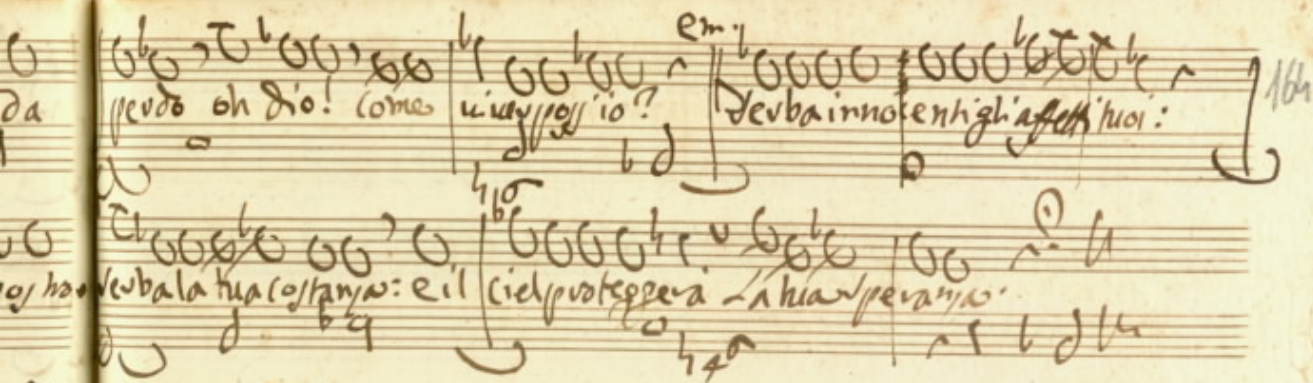 em.
da perdo oh dio! come viver poss'io? Serba innocenti gli affetti tuoi:
164
serba la tua costanza: e il ciel proteggerà La tua speranza.